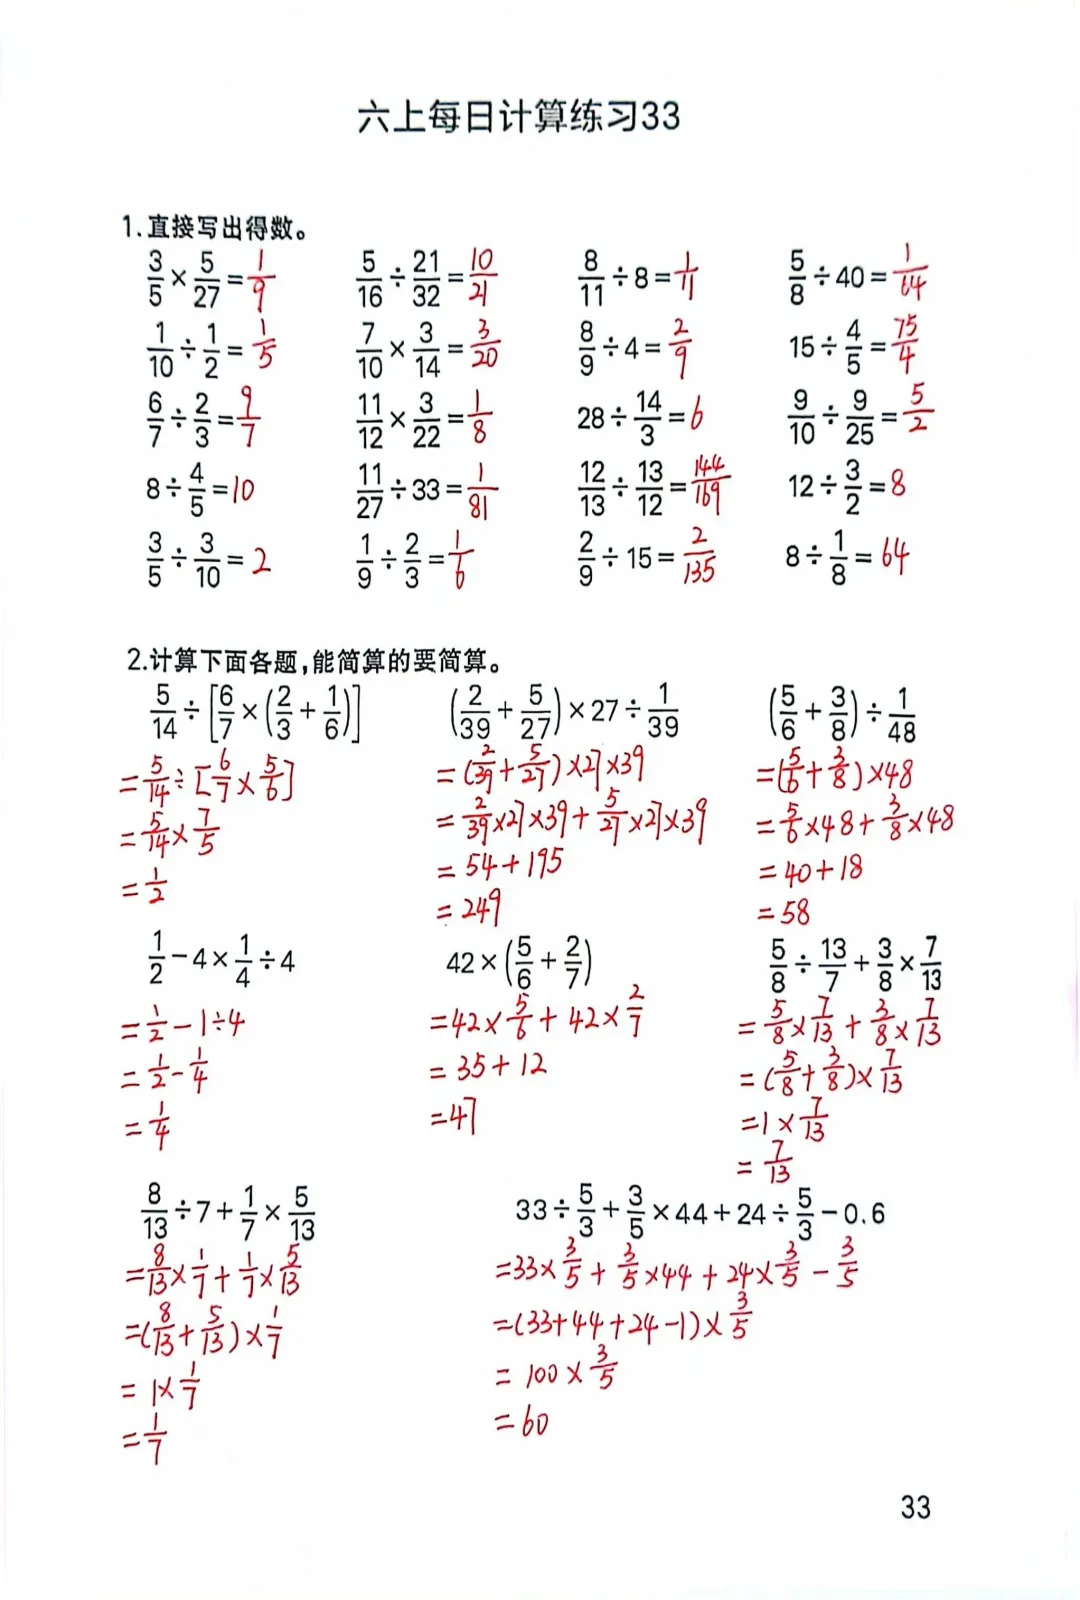 六上每日计算练习33
1.直接写出得数。
3/5×5/27=1/9 5/16÷21/32=10/21 8/11÷8=1/11 5/8÷40=1/64
1/10÷1/2=1/5 7/10×3/14=3/20 8/9÷4=2/9 15÷4/5=75/4
6/7÷2/3=9/7 11/12×3/22=1/8 28÷14/3=6 9/10÷9/25=5/2
8÷4/5=10 11/27÷33=1/81 12/13÷13/12=144/169 12÷3/2=8
3/5÷3/10=2 1/9÷2/3=1/6 2/9÷15=2/135 8÷1/8=64
2.计算下面各题,能简算的要简算。
5/14÷[6/7×(2/3+1/6)]
=5/14÷[6/7×5/6]
=5/14×7/5
=1/2
(2/39+5/27)×27÷1/39
=(2/39+5/27)×27×39
=2/39×27×39+5/27×27×39
=54+195
=249
(5/6+3/8)÷1/48
=(5/6+3/8)×48
=5/6×48+3/8×48
=40+18
=58
1/2-4×1/4÷4
=1/2-1÷4
=1/2-1/4
=1/4
42×(5/6+2/7)
=42×5/6+42×2/7
=35+12
=47
5/8÷13/7+3/8×7/13
=5/8×7/13+3/8×7/13
=(5/8+3/8)×7/13
=1×7/13
=7/13
8/13÷7+1/7×5/13
=8/13×1/7+1/7×5/13
=(8/13+5/13)×1/7
=1×1/7
=1/7
33÷5/3+3/5×44+24÷5/3-0.6
=33×3/5+3/5×44+24×3/5-3/5
=(33+44+24-1)×3/5
=100×3/5
=60
33